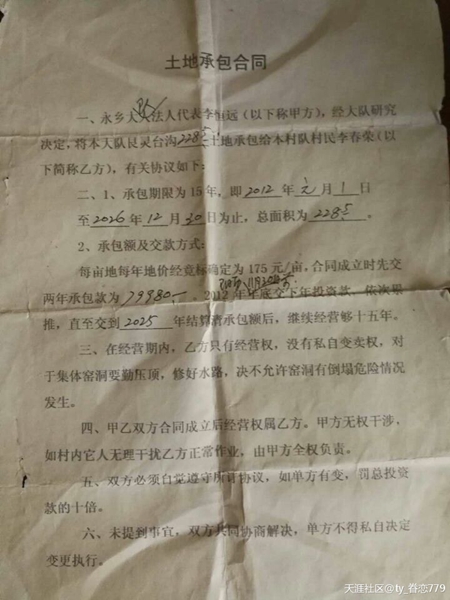 土地承包合同
一、永乡大队法人代表李恒远（以下称甲方），经大队研究
决定，将本大队艮灵台沟228亩土地承包给本村队村民李春荣（以
下简称乙方），有关协议如下：
二、1、承包期限为15年，即2012年元月1日
至2026年12月30日为止，总面积为228亩。
2、承包额及交款方式：
每亩地每年地价经竞标确定为175元/亩，合同成立时先交
两年承包款为79980.-，2012年年底交下年投资款，依次类
推，直至交到2025年结算清承包额后，继续经营够十五年。
三、在经营期内，乙方只有经营权，没有私自变卖权，对
于集体窑洞要勤压顶，修好水路，决不允许窑洞有倒塌危险情况
发生。
四、甲乙双方合同成立后经营权属乙方。甲方无权干涉，
如村内它人无理干扰乙方正常作业，由甲方全权负责。
五、双方必须自觉遵守所订协议，如单方有变，罚总投资
款的十倍。
六、未提到事宜，双方共同协商解决，单方不得私自决定
变更执行。
天涯社区@ty_眷恋779